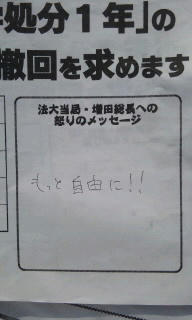 処分1年」の
撤回を求めます
法大当局・増田総長への
怒りのメッセージ
もっと自由に!!